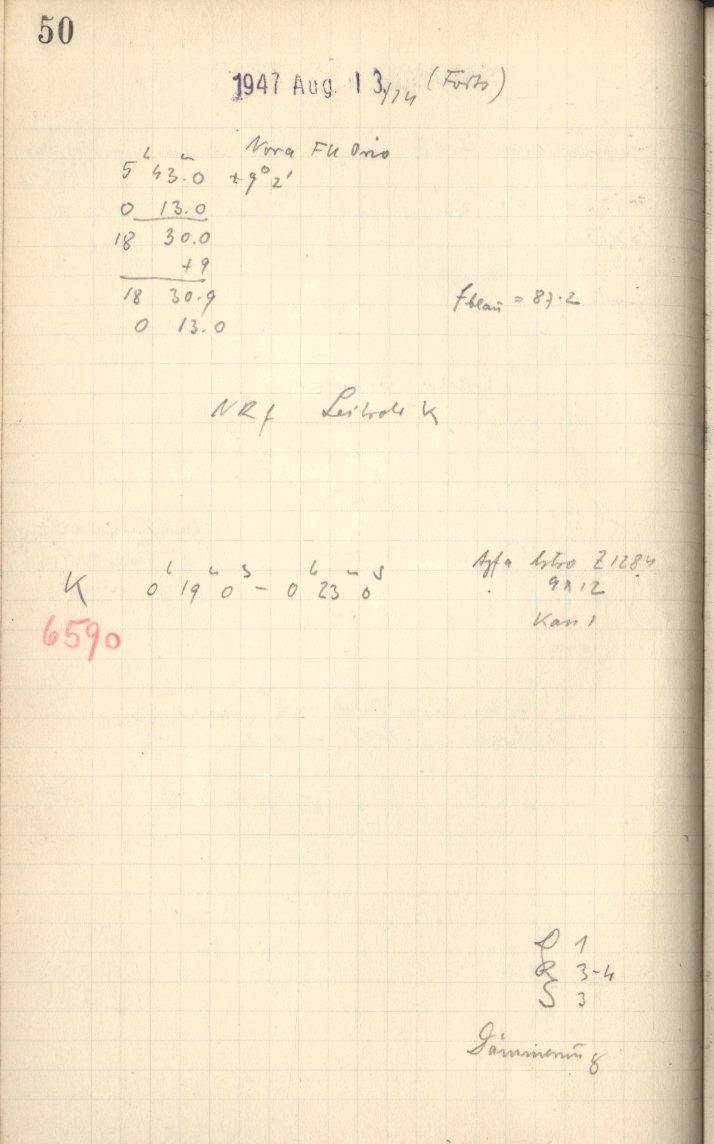 50
1947 Aug. 13./14 (Forts)
Nova FU Orio
5h 43m.0 +9° 2'
0 13.0
18 30.0
+9
18 30.9
0 13.0
f blau = 87.2
NRf Leitrohr K
K 0h 19m 0s – 0h 23m 0s
Agfa Astro Z 1284
9x12
Kass 1
6590
D 1
R 3-4
S 3
Dämmerung